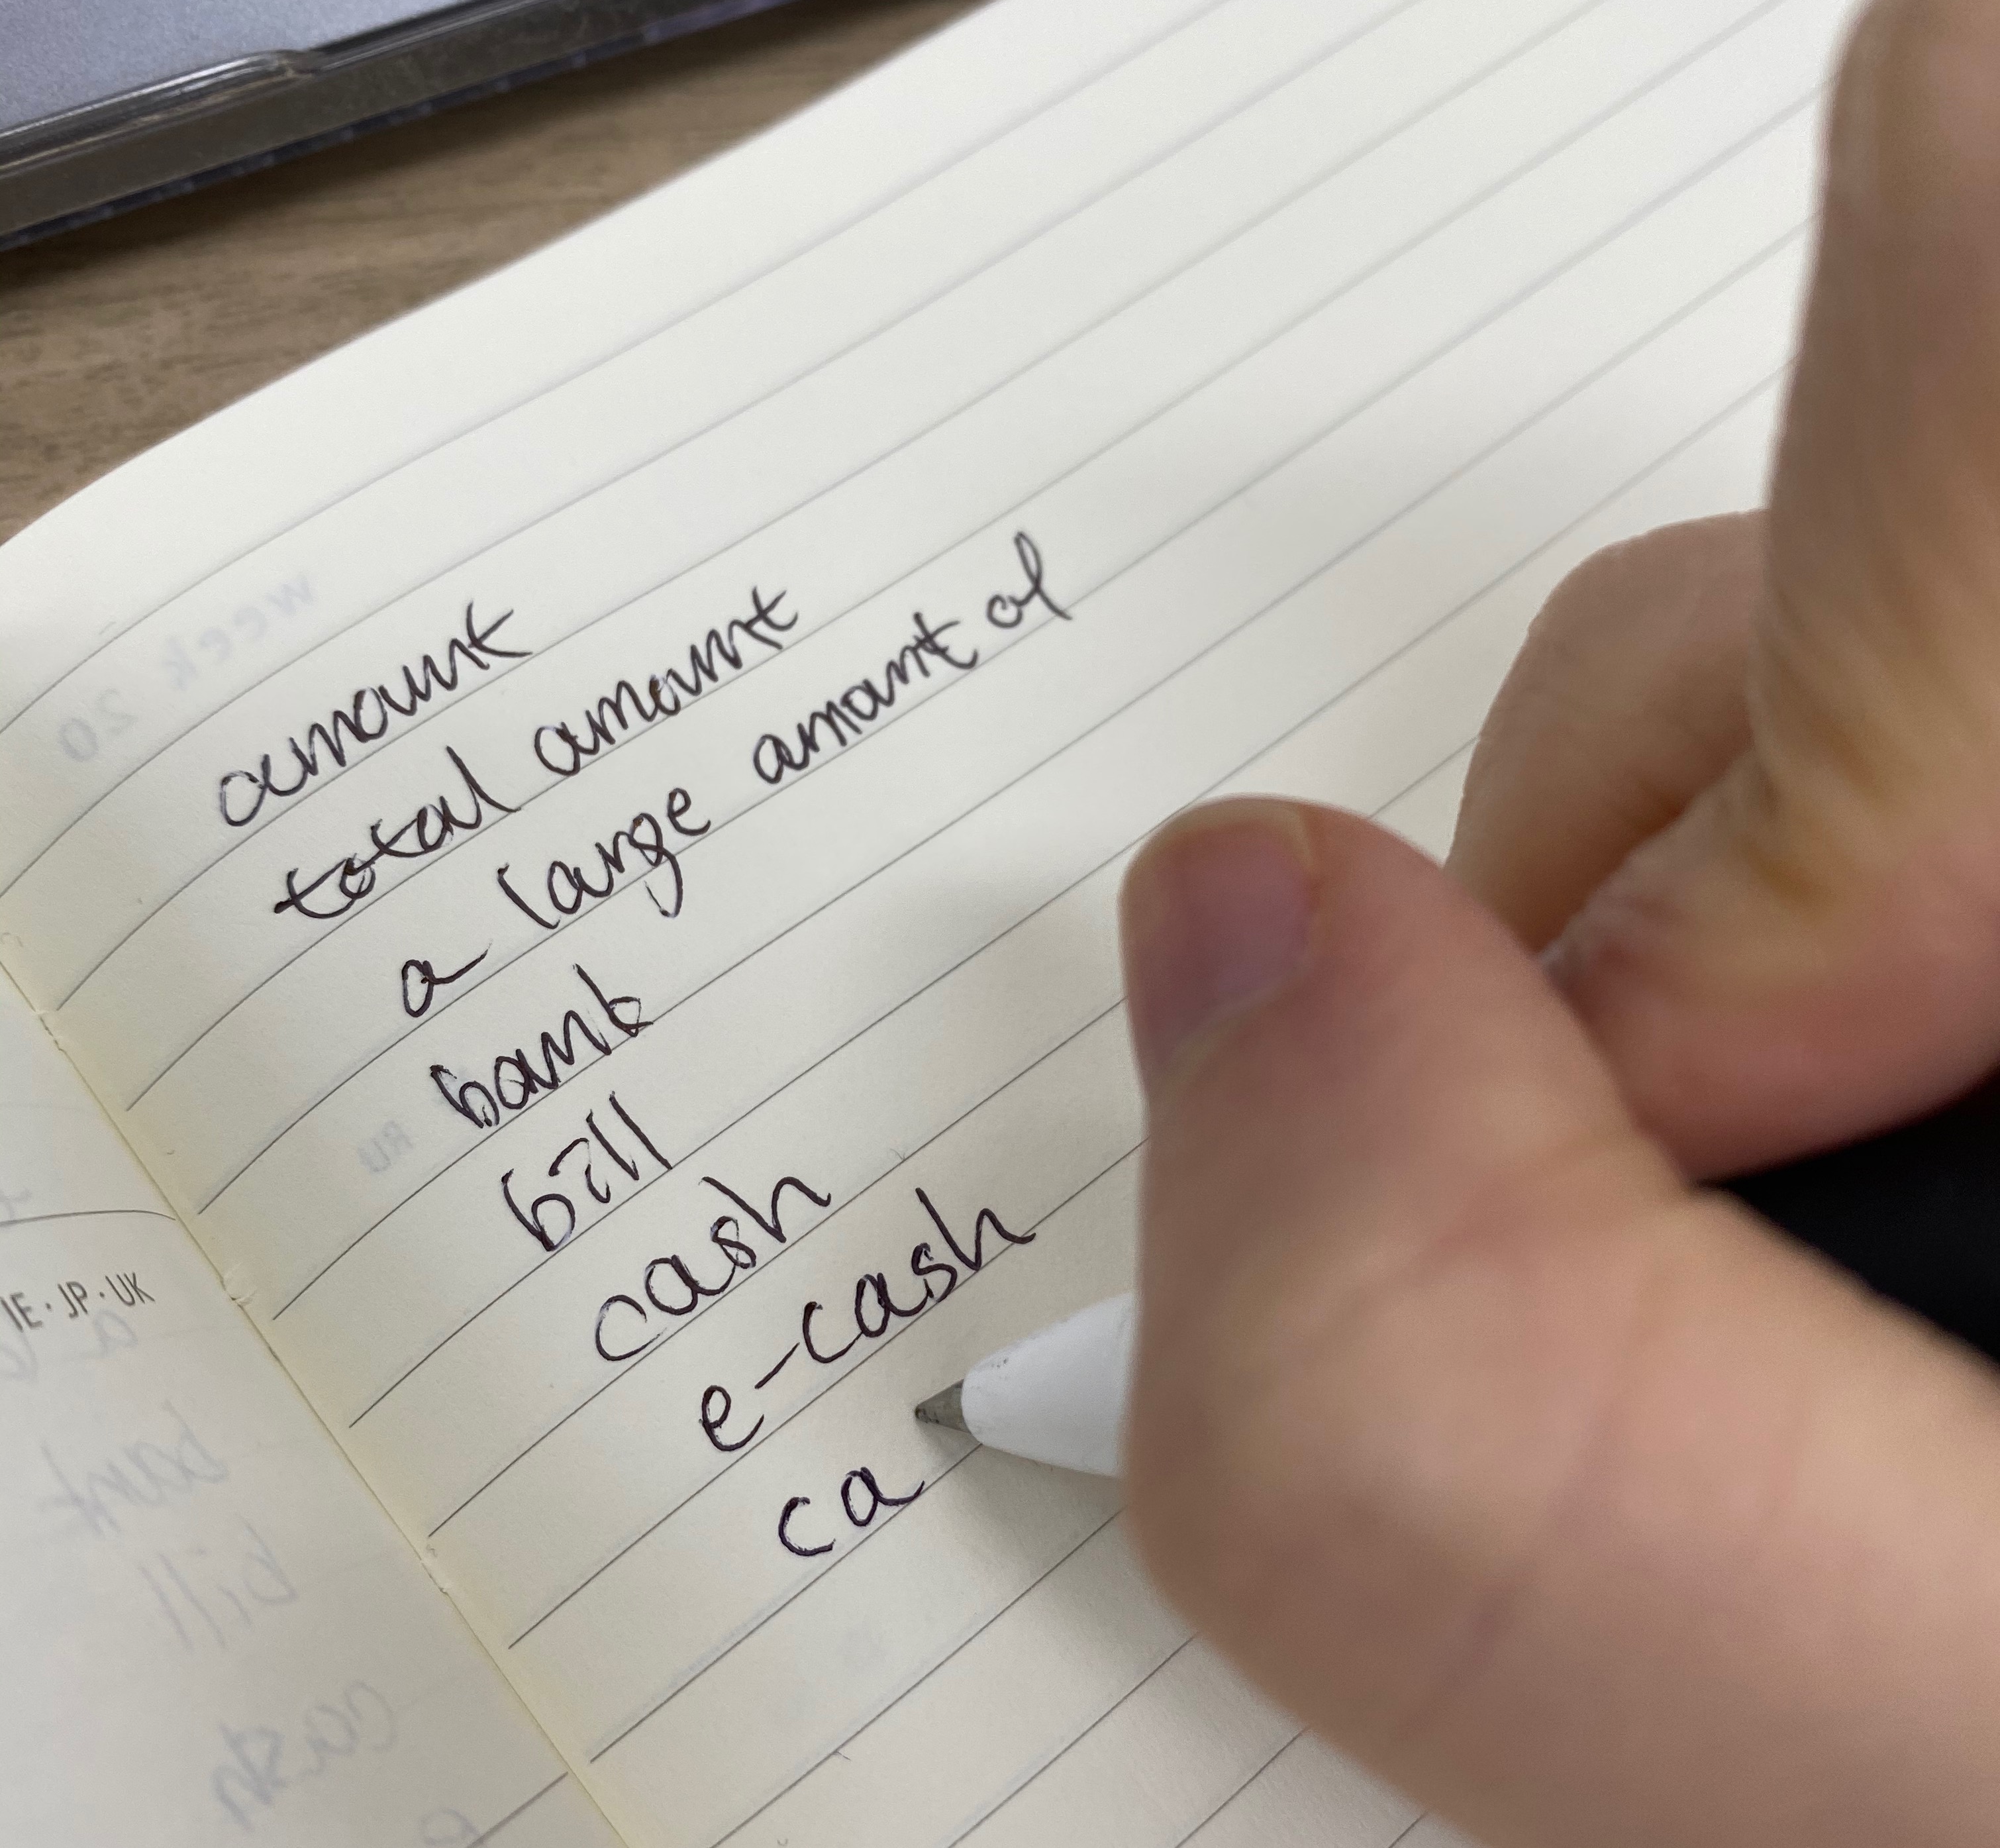 week 20
amount
total amount
a large amount of
bank
bill
cash
e-cash
ca
RU
IE · JP · UK
a
bank
bill
cash
e